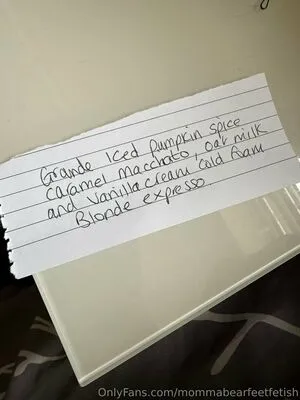 Grande Iced Pumpkin spice
caramel macchato, oat milk
and Vanilla cream Cold foam
Blonde expresso.
OnlyFans.com/mommabearfeetfetish